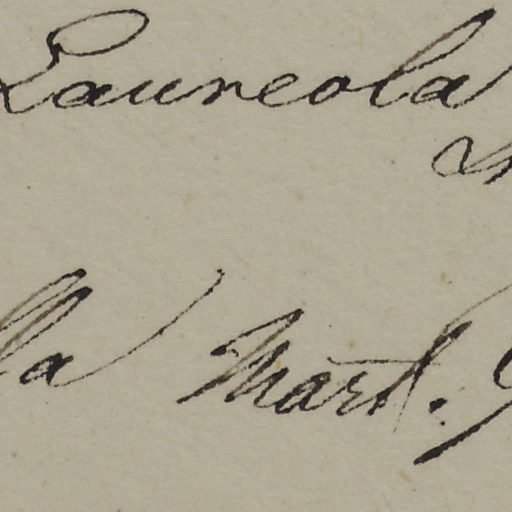 Laureola
la Mart.